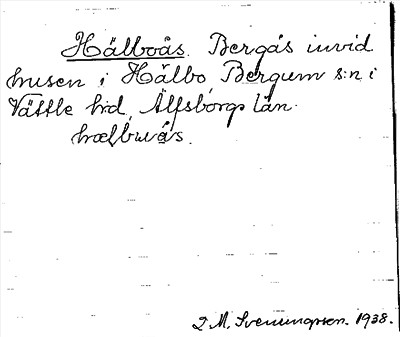 Hälboås. Bergås invid
husen i Hälbo Bergum s:n i
Vättle hd, Älfsborgs län.
hælbuås.
2 M. Svenungsson. 1938.